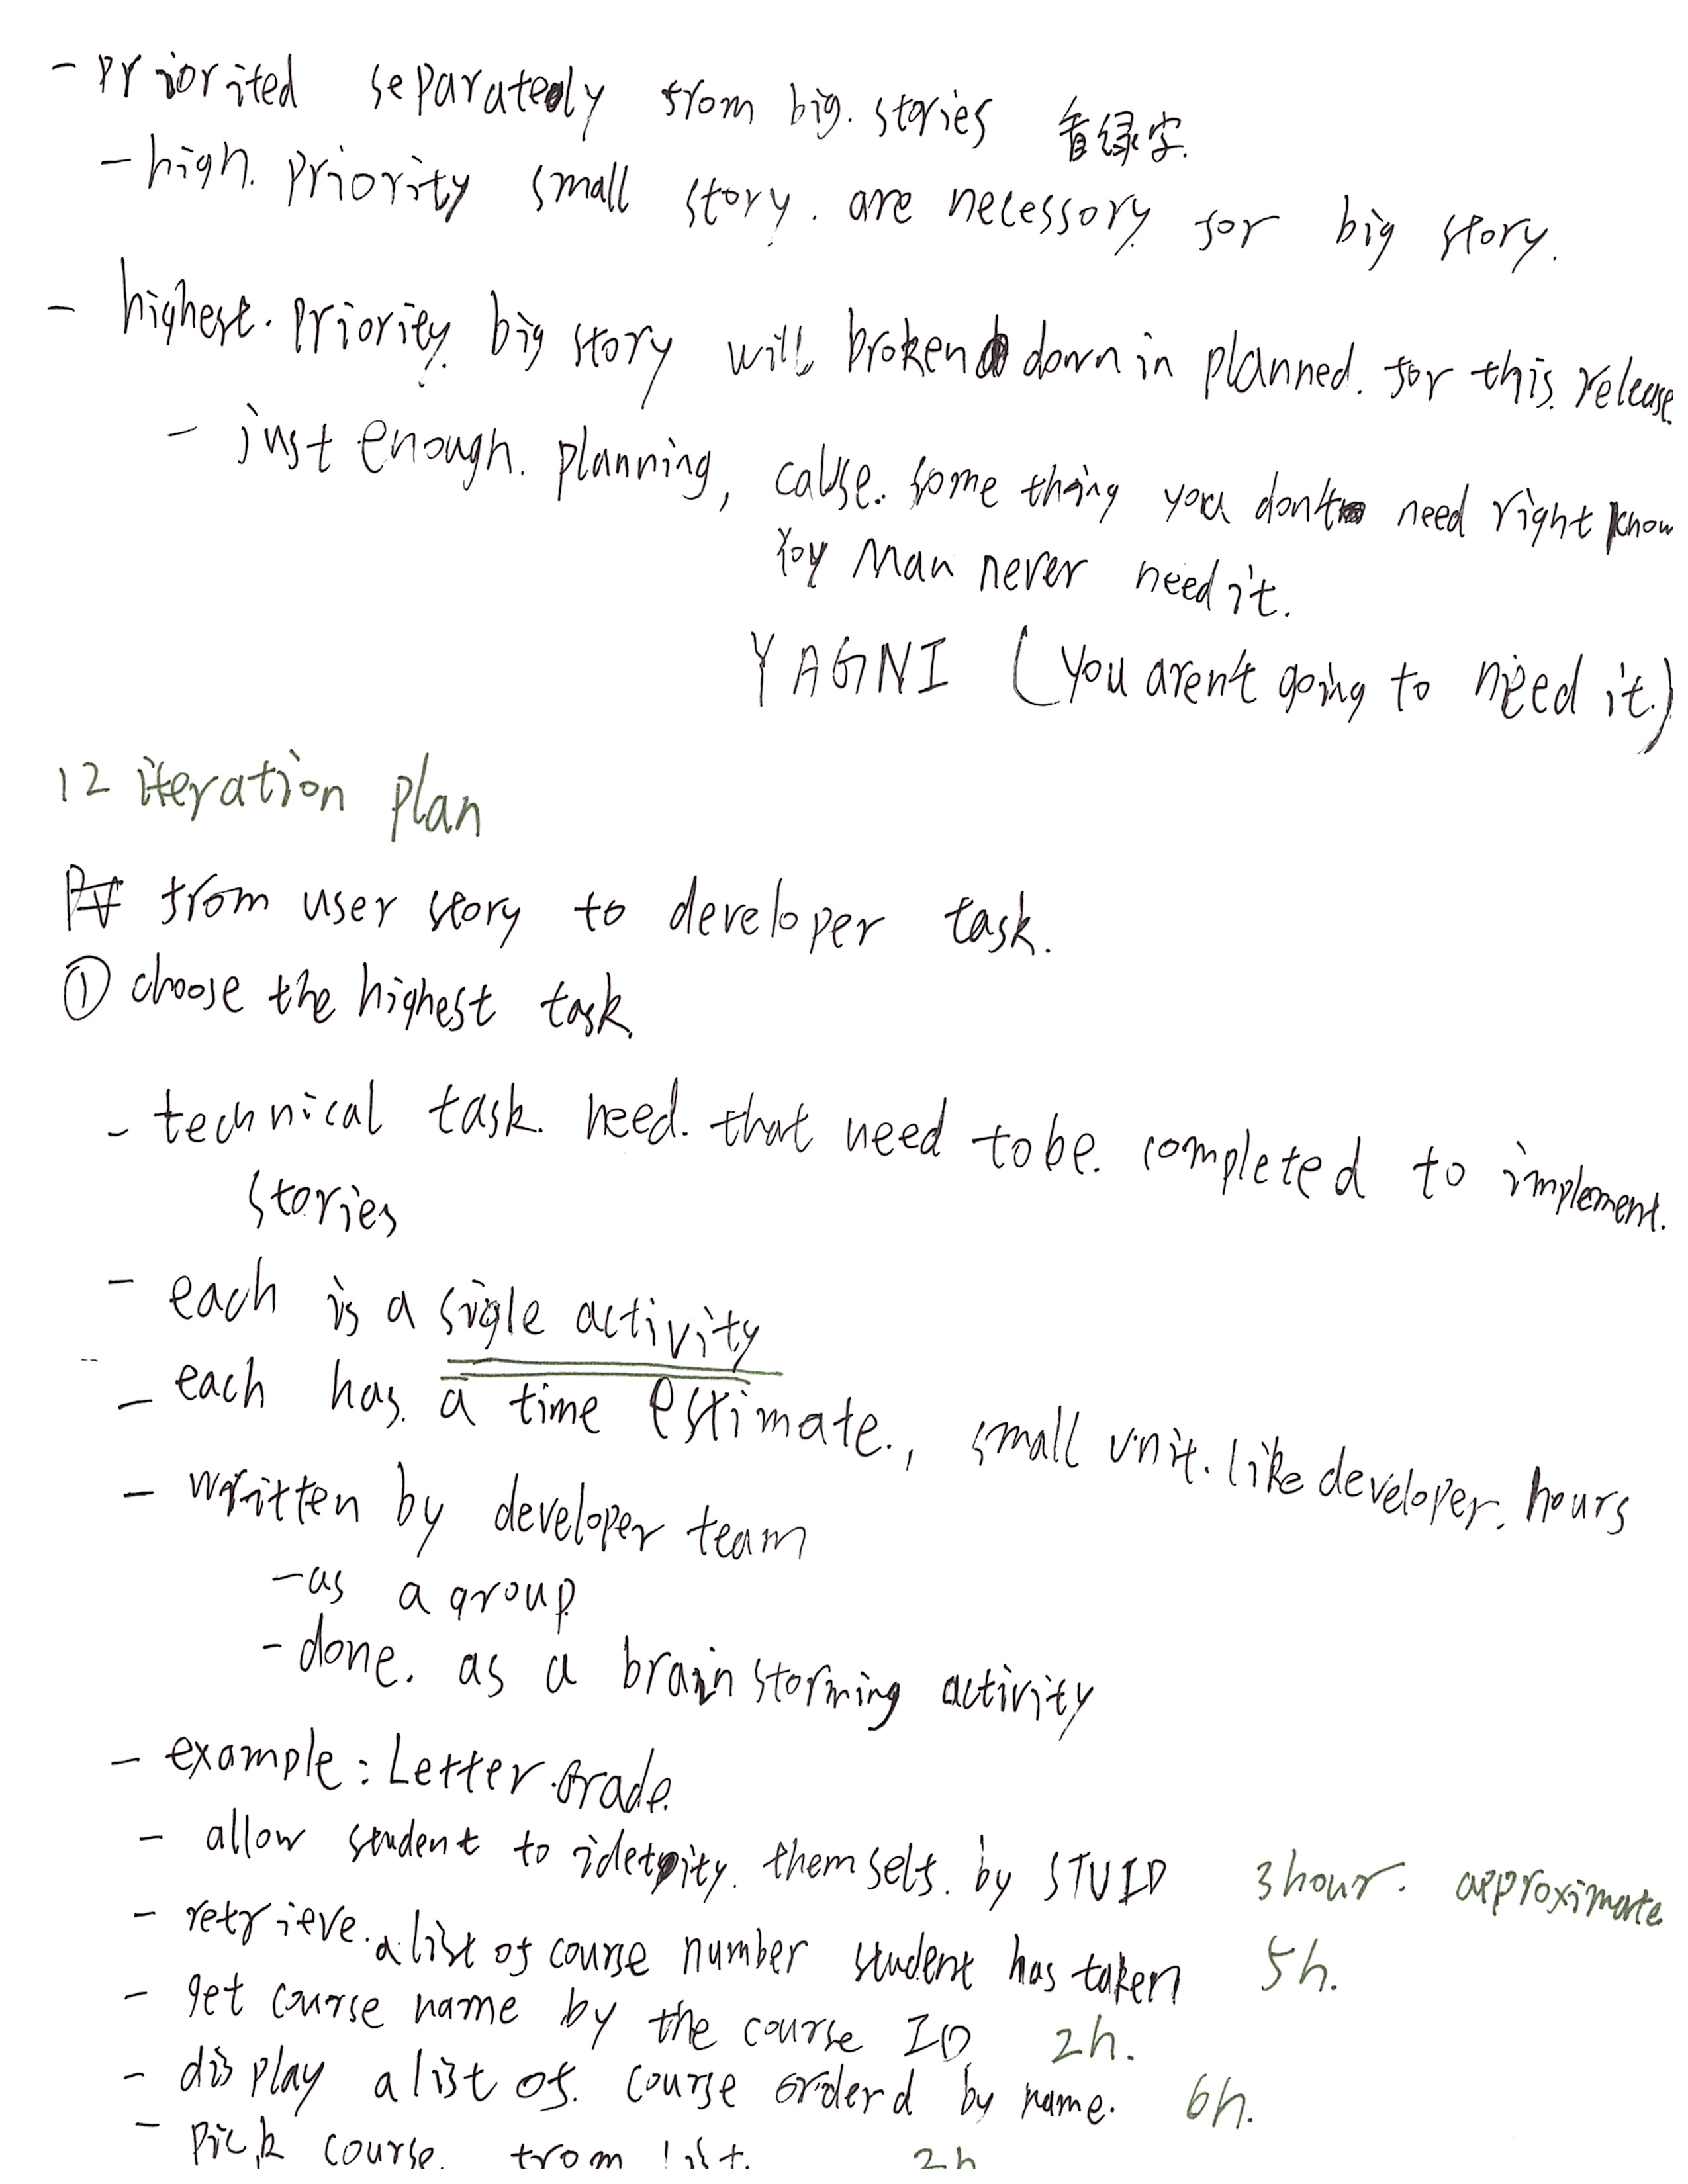 - priorited separately from big. stories 看绿字.
- high. priority small story. are necessory for big story.
- highest. priority big story will broken down in planned. for this. release.
- just enough. planning, cause. some thing you don't need right know
You man never need it.
YAGNI (you aren't going to need it.)
12 iteration plan
from user story to developer task.
① choose the highest task.
- technical task. need. that need to be. completed to implement.
stories
- each is a sigle activity
- each has. a time estimate., small unit. like developer. hours
- written by developer team
- as a group
- done. as a brain storming activity
- example: Letter.Grade.
- allow student to idetity. themself. by STUID 3hour. approximate.
- retrieve. a list of course number student has taken 5h.
- get course name by the course ID 2h.
- display a list of. course orderd by name. 6h.
- pick course from list. 2h